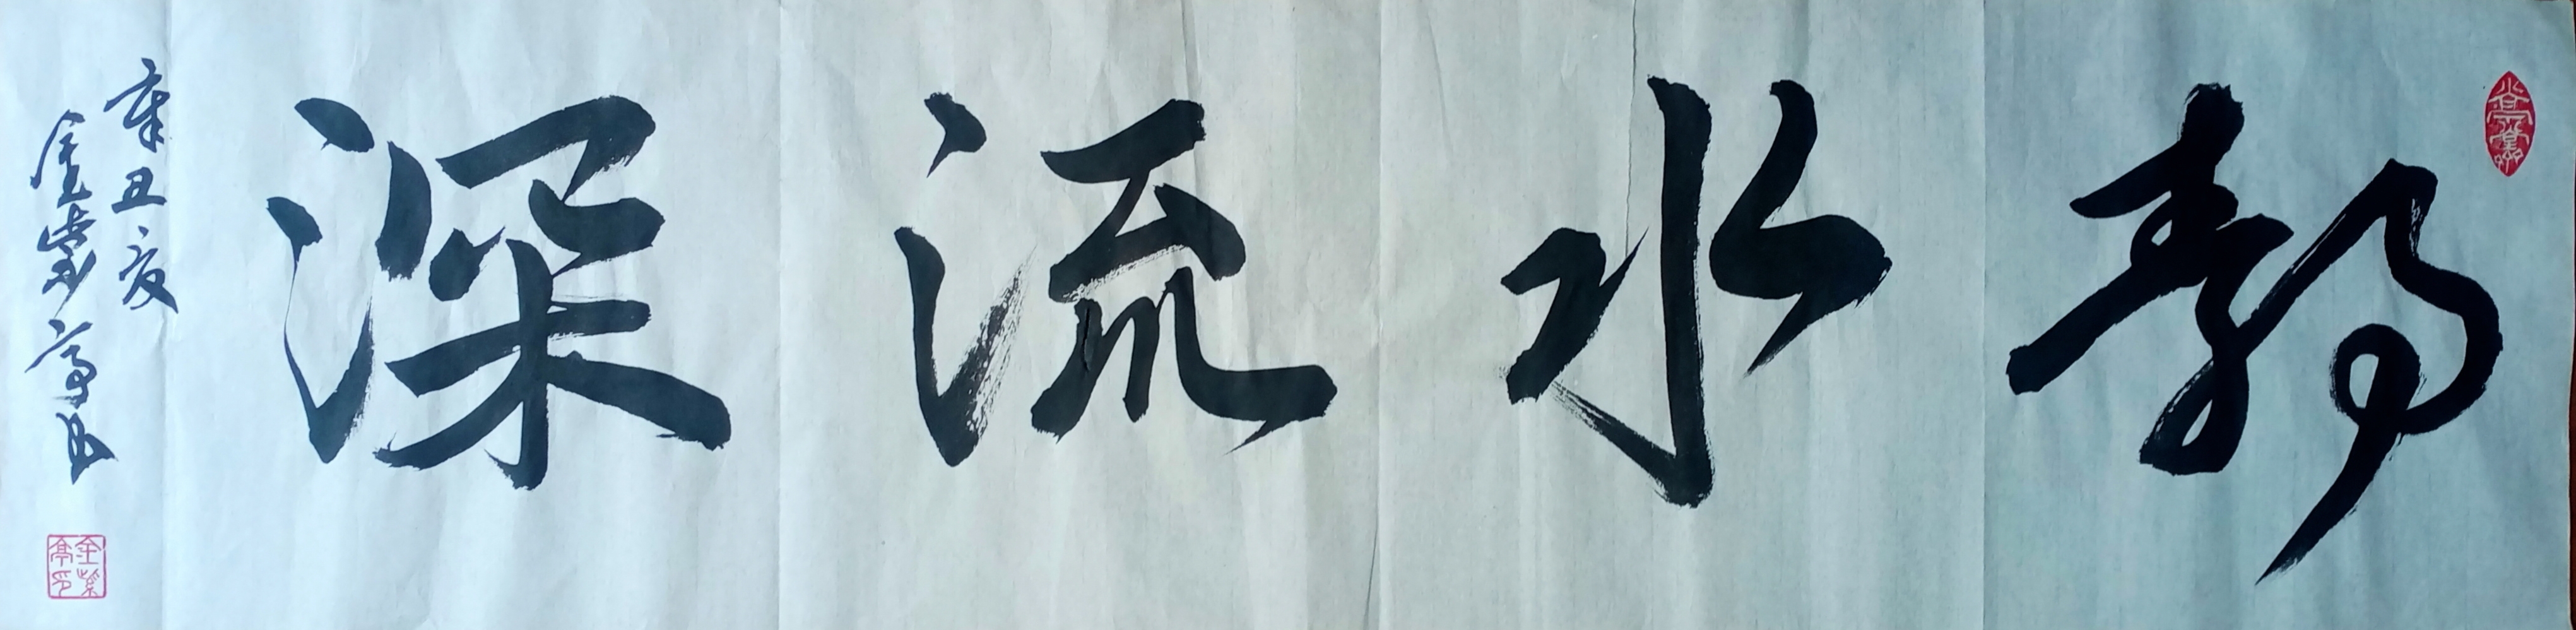 静水流深
辛丑夏
金紫亭书
金紫亭印